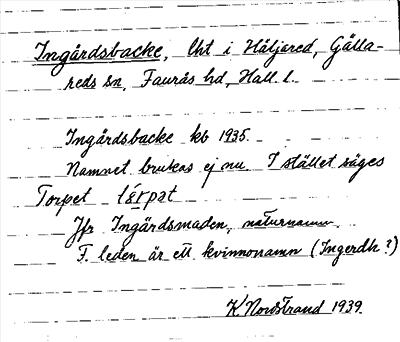 Ingärdsbacke, lht i Häljared, Gälla-
reds sn, Faurås hd, Hall. l.
Ingärdsbacke kb 1935.
Namnet brukas ej nu. I stället säges
Torpet
Jfr Ingärdsmaden, naturnamn.
F. leden är ett kvinnonamn (Ingerdh?)
K. Nordstrand 1939.